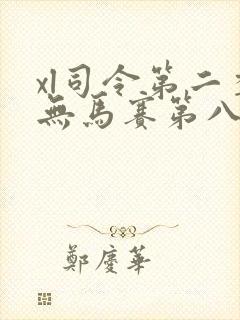 xl司令第二季
無馬賽第八
鄭慶華